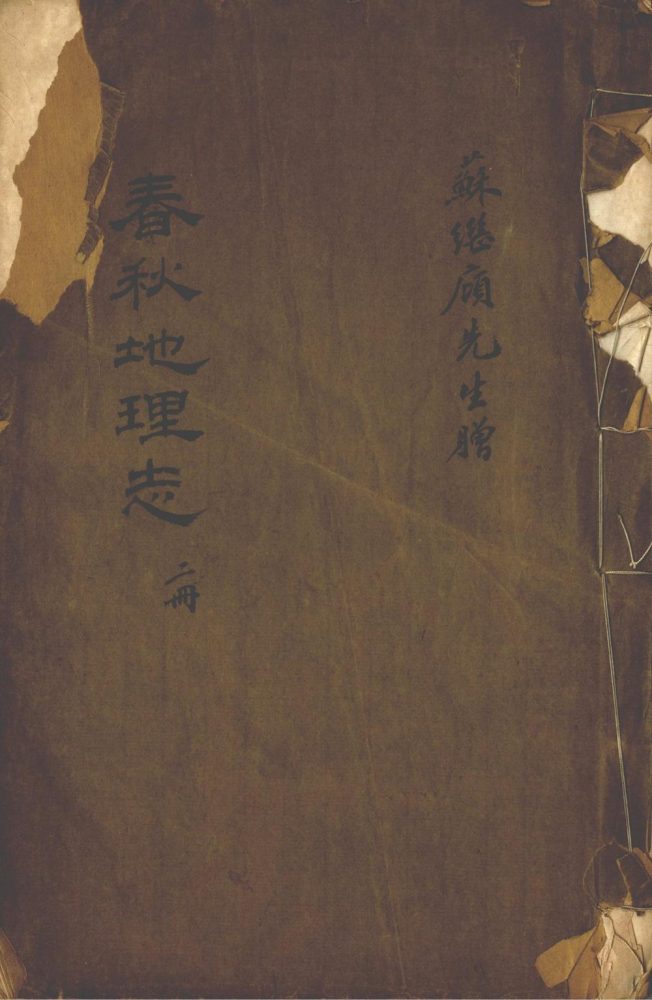 蘇繼頋先生贈
春秋地理志
二冊